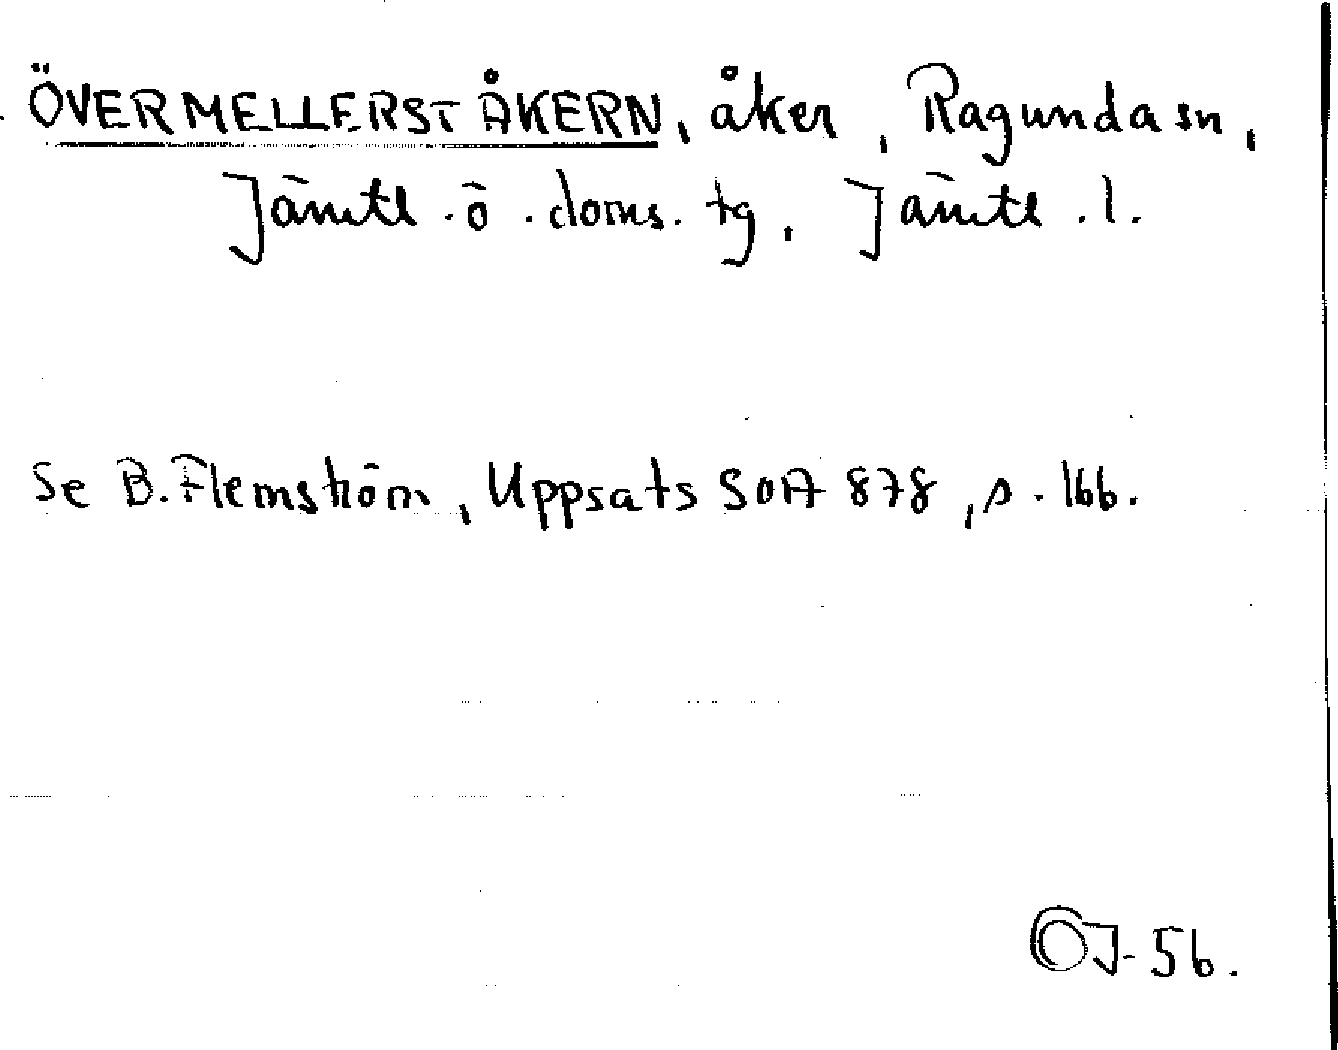 ÖVERMELLERSTÅKERN, åker, Ragunda sn,
Jämtl. ö. doms. tg, Jämtl. l.
Se B. Flemström, Uppsats SOA 878, s. 166.
OJ-56.